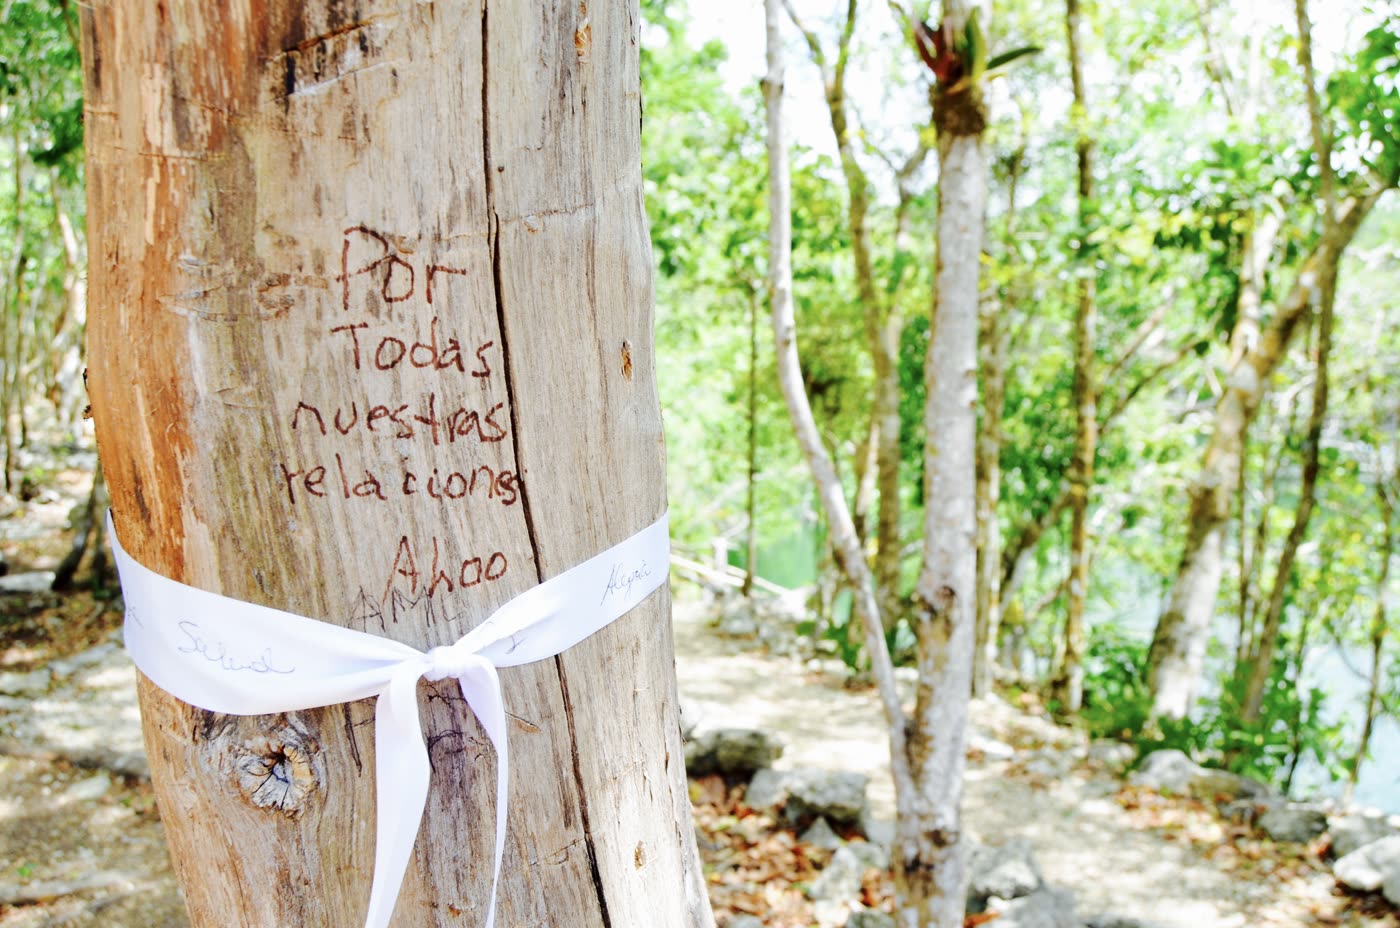 Por
Todas
nuestras
relaciones
Ahoo
Salud
Alegria